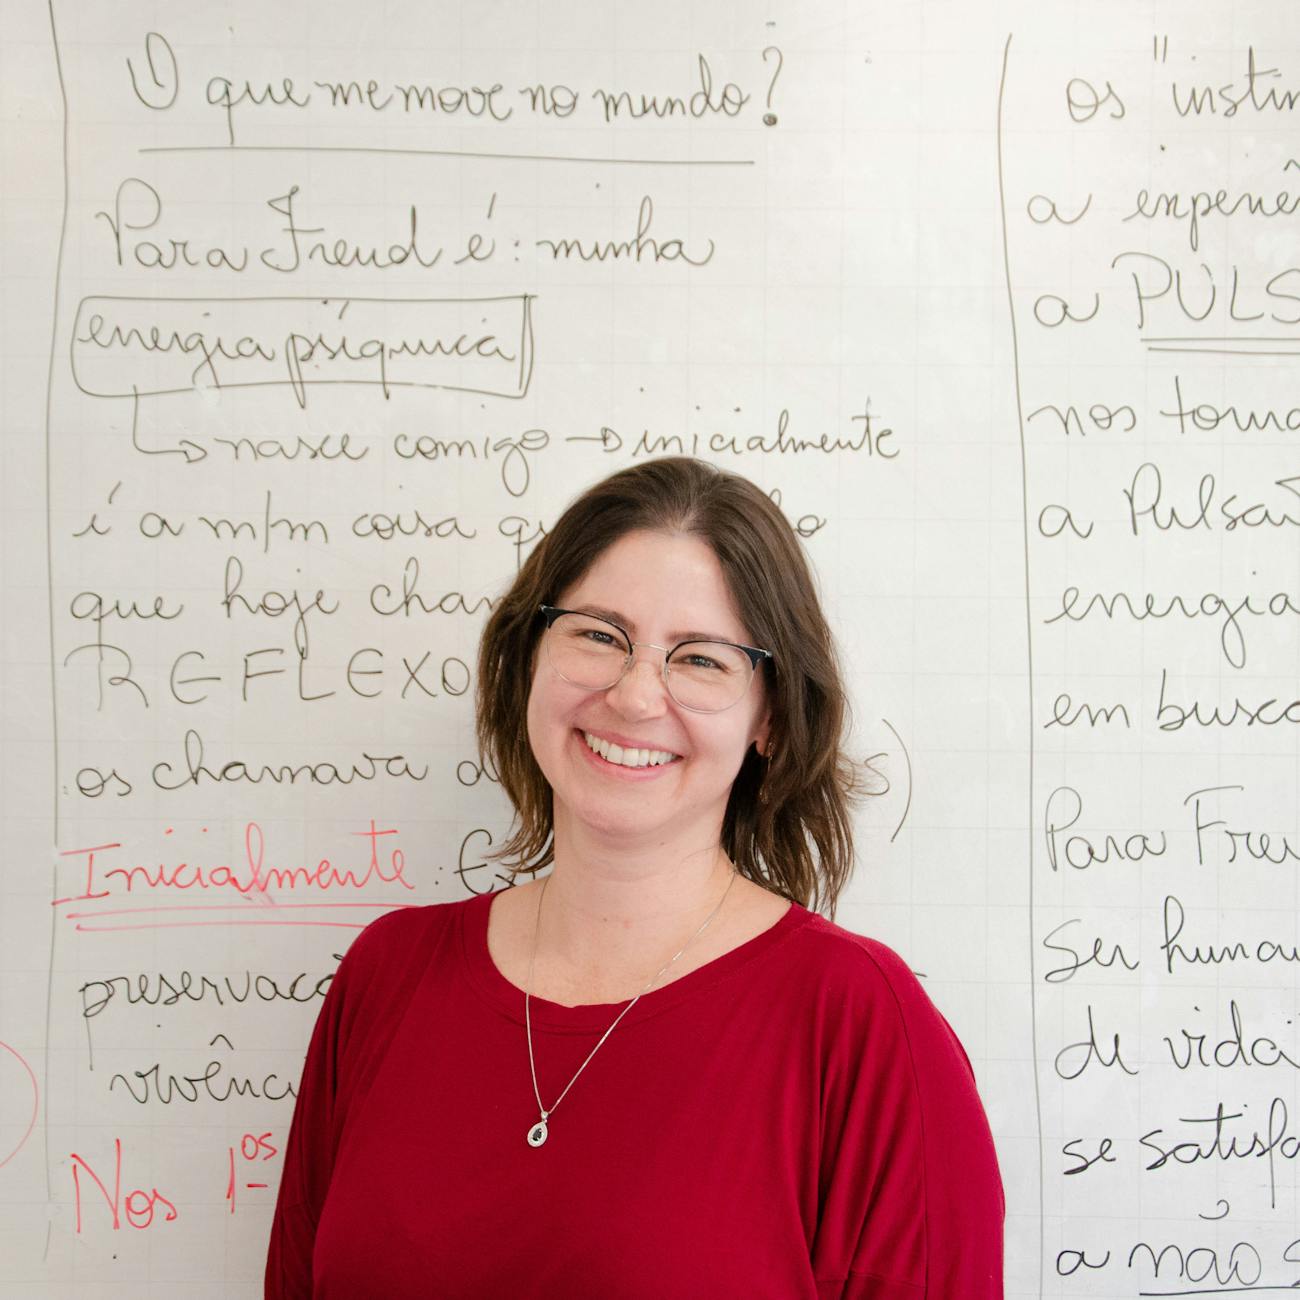 O que me move no mundo?
Para Freud é: minha
energia psíquica
↳ nasce comigo → inicialmente
é a m/m coisa qu
que hoje cham
REFLEXO
os chamava d s)
Inicialmente: Ex
preservaçã
vivênci
Nos 1os
os "instin
a experiê
a PULS
nos torna
a Pulsão
energia
em busca
Para Freu
ser human
de vida
se satisfa
a não s